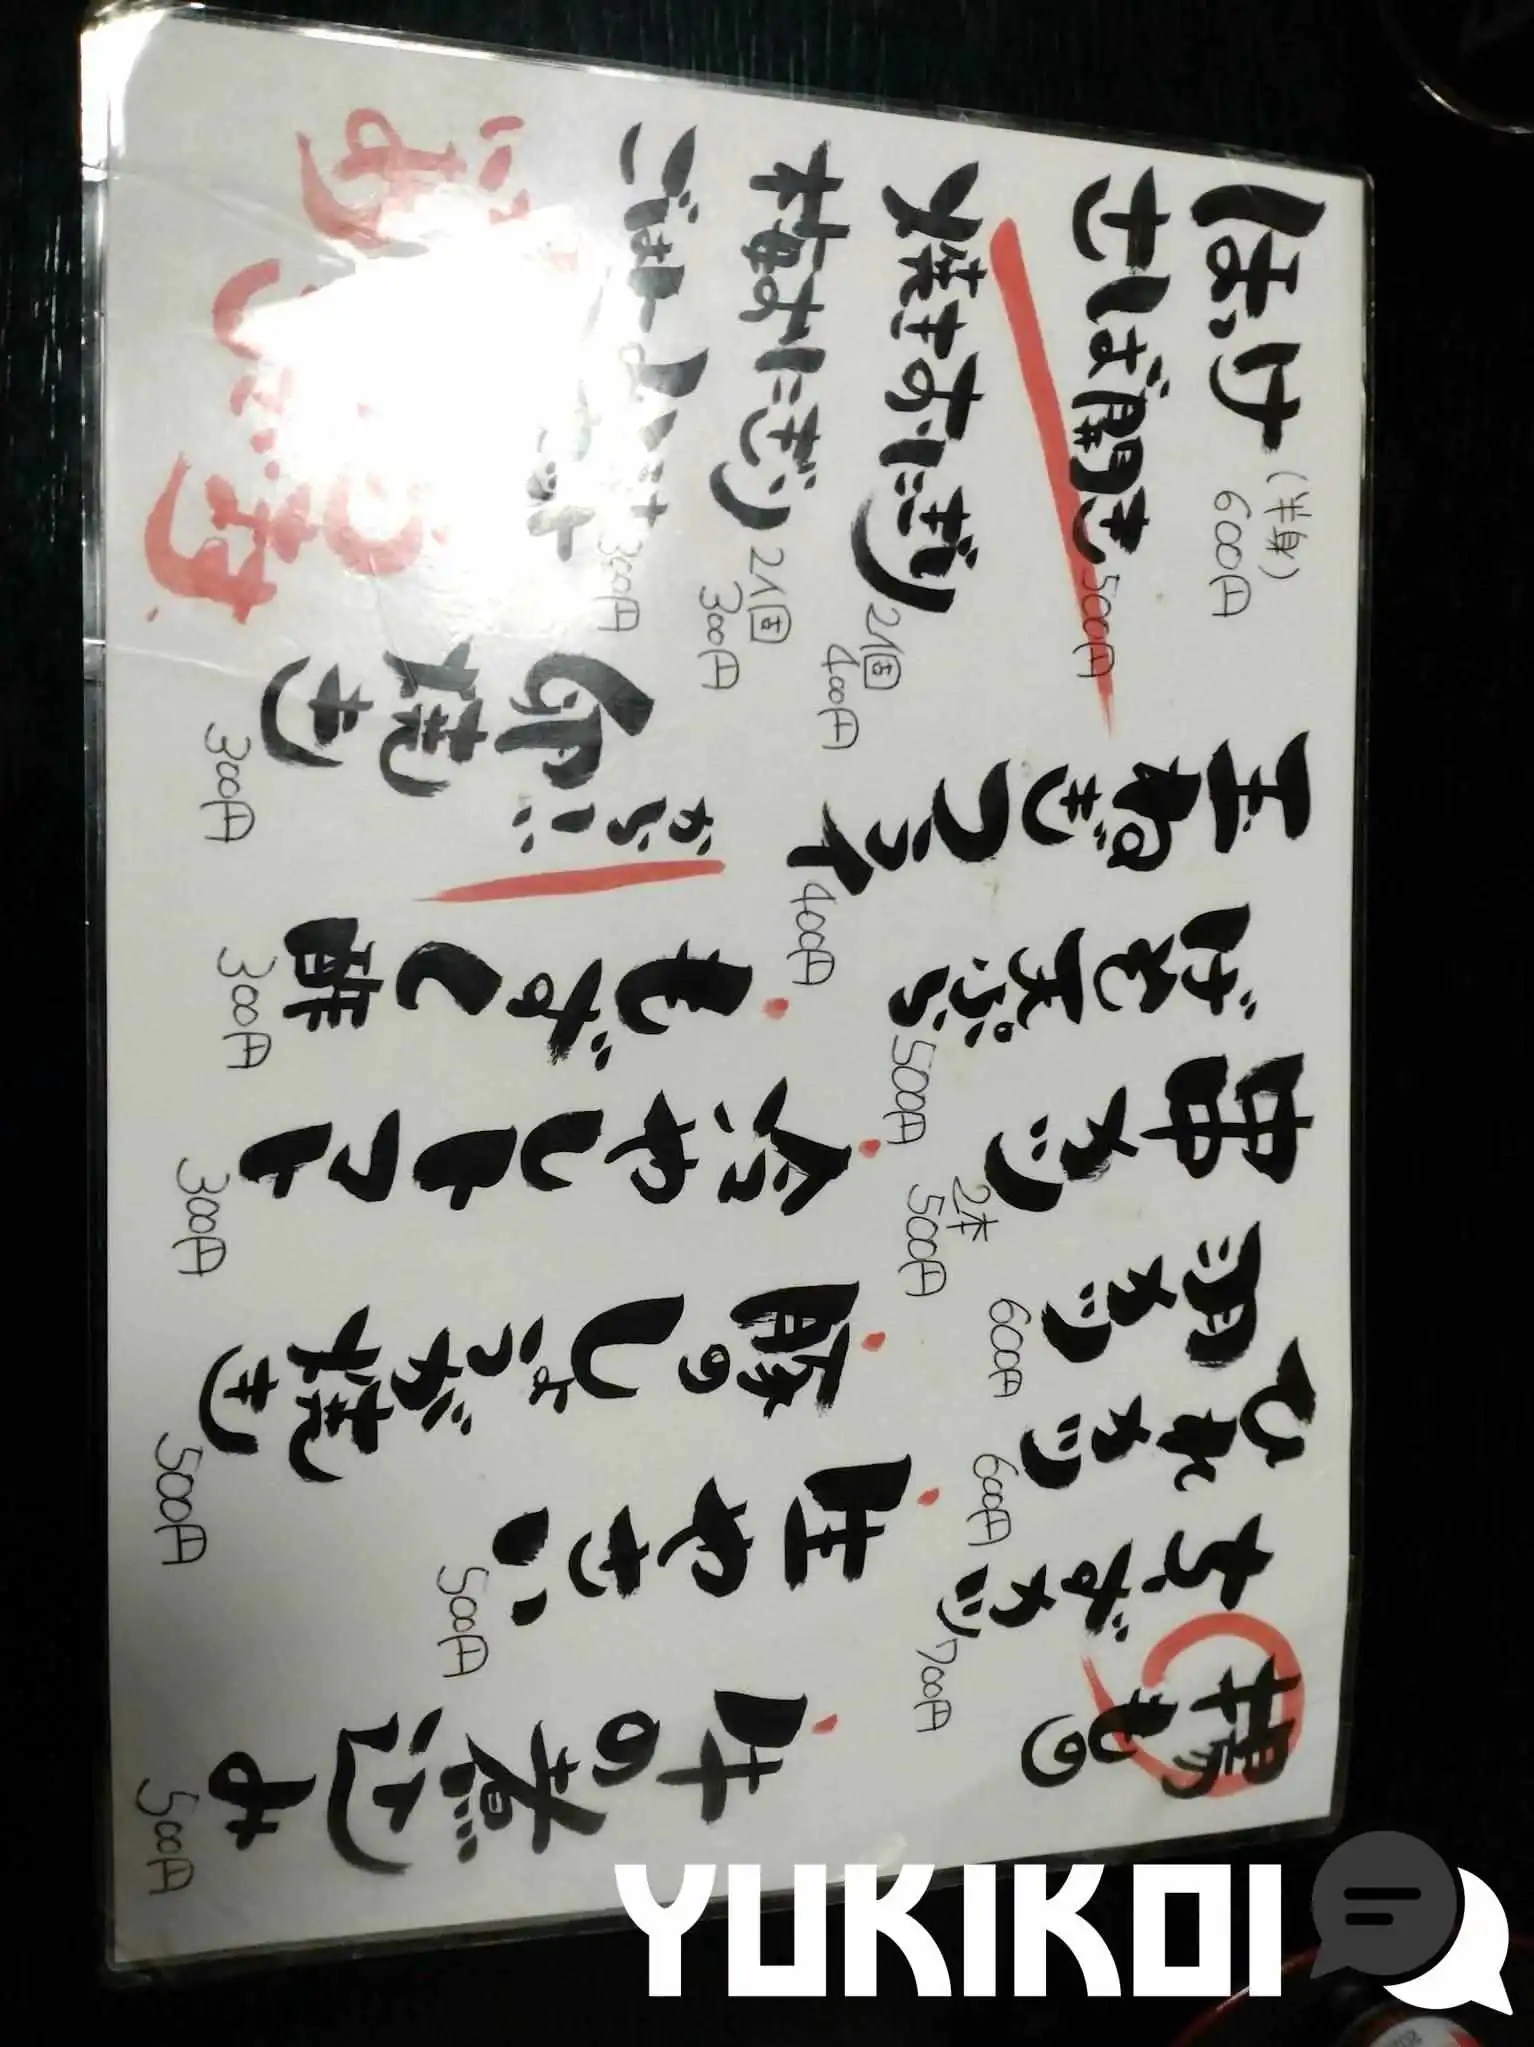 揚もの
カツ 700円
ひれカツ 600円
カツ 600円
串カツ 2本 500円
げそ天ぷら 500円
玉ねぎフライ 400円
ほっけ (半身) 600円
さば開き 500円
焼きおにぎり 2個 400円
梅おにぎり 2個 300円
ごはん 300円
牛の煮込み 500円
生やさい 500円
豚のしょうが焼き 500円
冷やしトマト 300円
もずく酢 300円
からい
卵焼き 300円
YUKIKOI